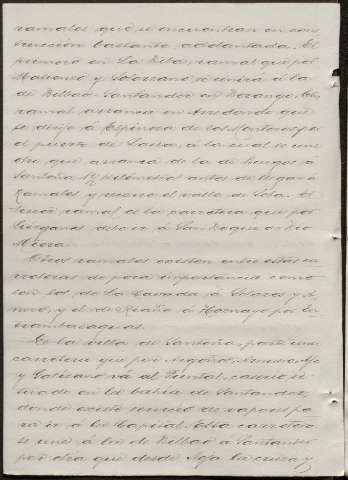 ramales que se encuentran en cons
truccion bastante adelantada. El
primero en La Bola, ramal que por
Matienzo y Solorzano se unirá á la
de Bilbao Santander en Beranga. Otro
ramal arranca en Arredondo que
se dirije á Espinosa de los Monteros por
el puerto de á la cual se une
otro que arranca de la de Burgos á
Santoña, kilómetros antes de llegar á
Ramales y recorre el valle de Soba. El
tercer ramal es la carretera que por
Liérganes desde á San Roque en Rio
Miera.
Otros ramales existen entre estas ca
rreteras de poca importancia como
son los de La Cavada á Solares y
y el de á Hoznayo por En
trambasaguas.
De la villa de Santoña, parte una
carretera que por Argoños,
y Galizano vá al Puntal, caserio si
tuado en la bahia de Santander,
donde existe servicio de vapores pa
ra ir á la Capital. Esta carretera
se une á la de Bilbao á Santander
por otra que desde la cruza y